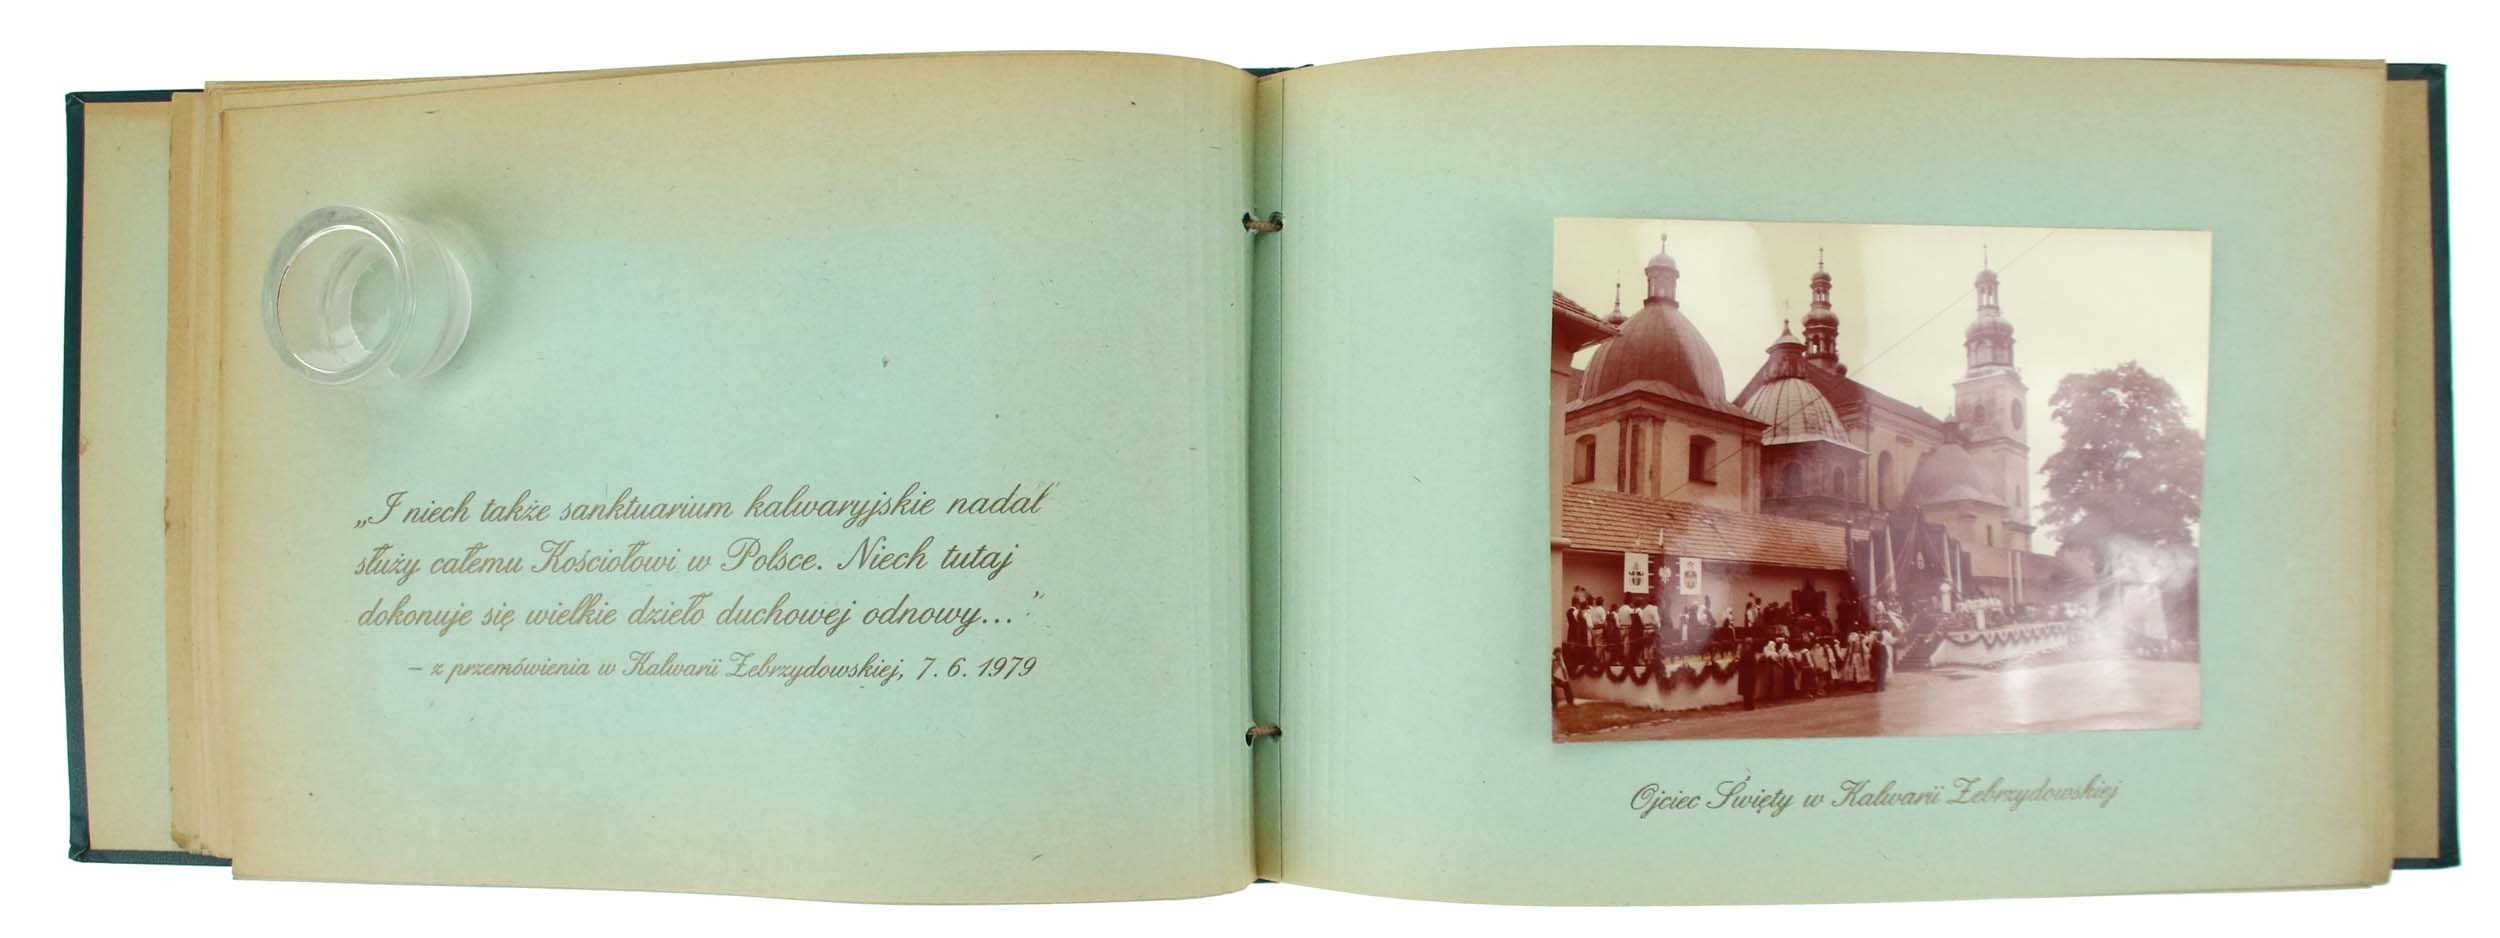 „I niech także sanktuarium kalwaryjskie nadal
służy całemu Kościołowi w Polsce. Niech tutaj
dokonuje się wielkie dzieło duchowej odnowy..."
– z przemówienia w Kalwarii Zebrzydowskiej, 7. 6. 1979
Ojciec Święty w Kalwarii Zebrzydowskiej